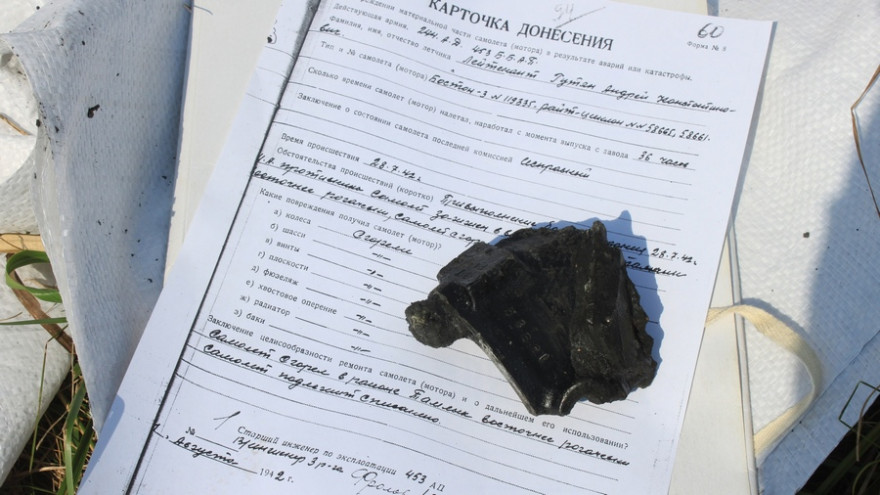 60
КАРТОЧКА ДОНЕСЕНИЯ
Форма № 6
материальной части самолета (мотора) в результате аварии или катастрофы.
Действующая армия. 244. А.Д. 453 Б.Б.А.П.
Фамилия, имя, отчество летчика Лейтенант Рутян Андрей
вич
Тип и № самолета (мотора) Бостон-3 N 119335. райт-циклон NN 58665, 58661.
Сколько времени самолет (мотор) налетал, наработал с момента выпуска с завода 36 часов
Заключение о состоянии самолета последней комиссией Исправный
Время происшествия 28.7.42г.
Обстоятельства происшествий (коротко) При выполнении 28.7.42г.
противника Самолет зажжен в
самолет сгор
Какие повреждения получил самолет (мотор)?
а) колеса Сгорели
б) шасси —„—
в) винты —„—
г) плоскости —„—
д) фюзеляж —„—
е) хвостовое оперение —„—
ж) радиатор —„—
з) баки —„—
Заключение целисообразности ремонта самолета (мотора) и о дальнейшем его использовании?
Самолет Сгорел в районе восточнее
самолет подлежит списанию.
№ 1
Старший инженер по эксплоатации 453 АП
3 р-га
Августа 1942 г.